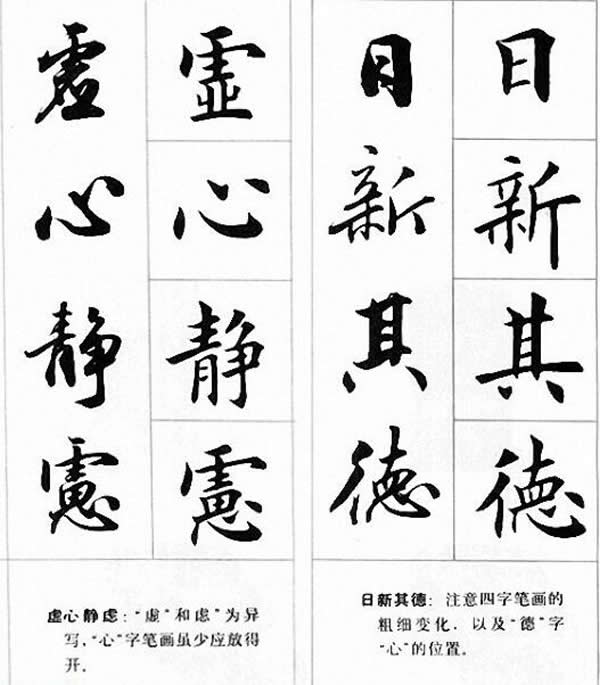 虚心静慮
虚心静慮
虚心静虑：“虚”和虑”为异
写，“心”字笔画虽少应放得
开。
日新其德
日新其德
日新其德：注意四字笔画的
粗细变化，以及“德”字
“心”的位置。